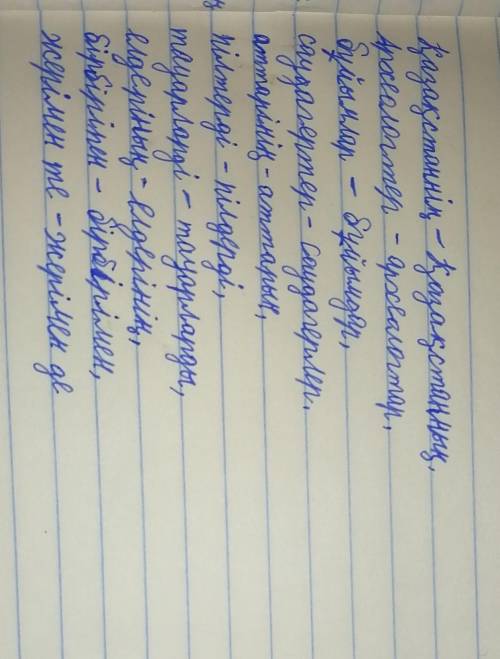 Қазақстаннің - Қазақстанның,
Археалогтер - археалогтар,
бұйымлар - бұйымдар,
саудагертер - саудагерлер.
аттарінің - аттарын,
пілтерді - пілдерді,
тауарлерді - тауарларды,
елдеріның - елдерінің,
бірбірімн - бірбірімен,
жерімен те - жерімен де